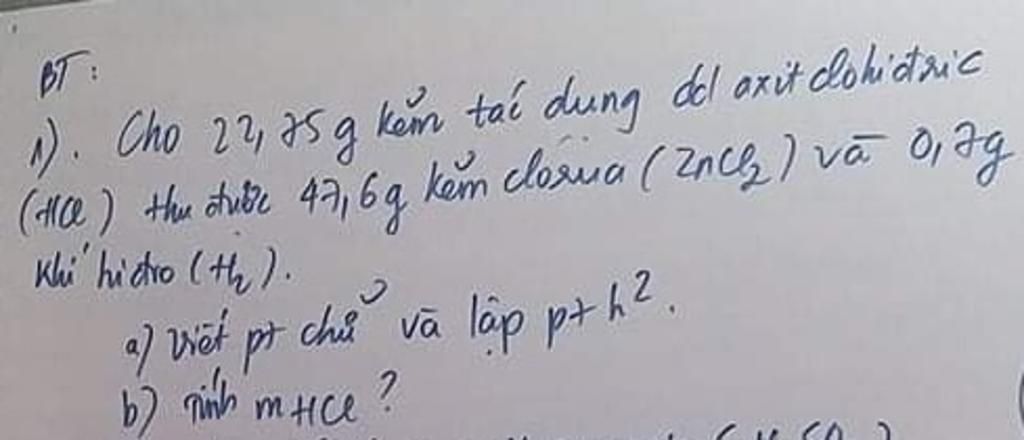 BT:
1). Cho 22,75g kẽm tác dung dd axit clohiđric
(HCl) thu được 47,6g kẽm clorua (ZnCl2) và 0,7g
khí hiđro (H2).
a) Viết pt chữ và lập pt h2.
b) Tính mHCl?